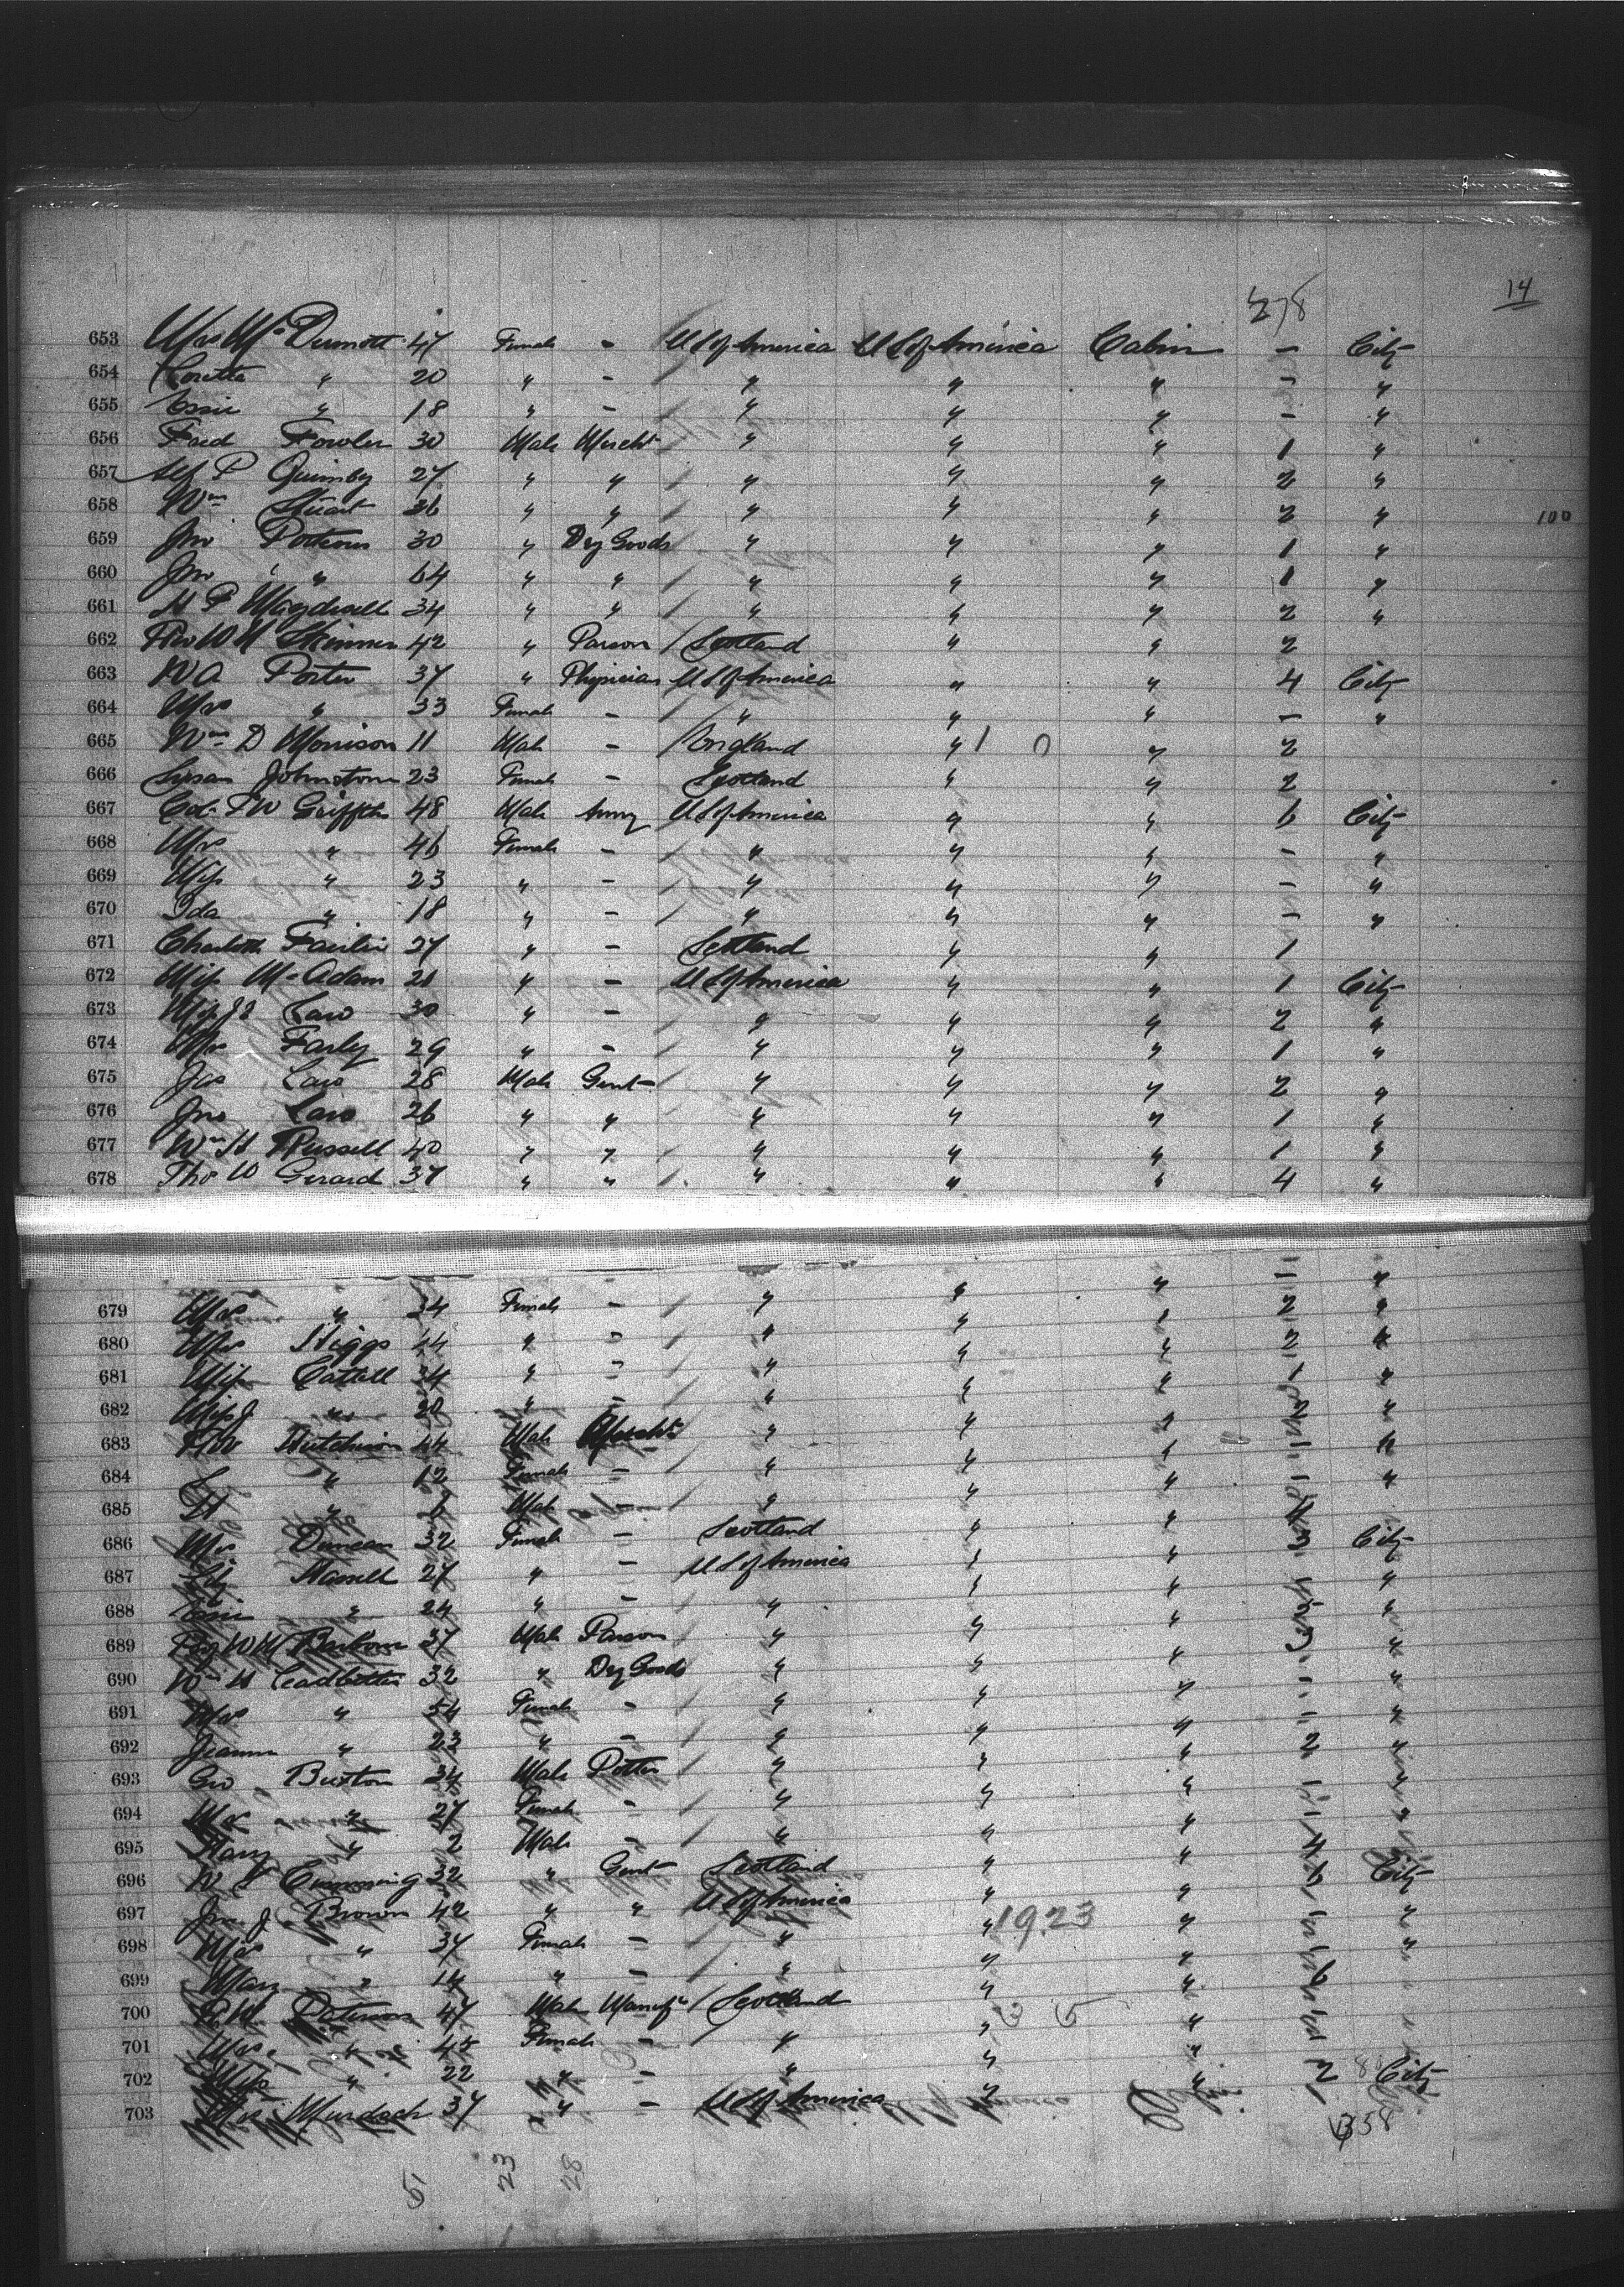 14
278
653 Mrs McDermott 47 Female - U S of America U S of America Cabin - City
654 Loretta " 20 " - " " " - "
655 Essie " 18 " - " " " - "
656 Fred Fowler 30 Male Mercht " " " 1 "
657 Alf P Quimby 27 " " " " " 2 "
658 Wm Stuart 26 " " " " " 2 "
100
659 Jno Porteous 30 " Dry Goods " " " 1 "
660 Jno " 64 " " " " " 1 "
661 34 " " " " " 2 "
662 Rev W H Skinner 42 " Parson Scotland " " 2
663 W A Porter 37 " Physician U S of America " " 4 City
664 Mrs " 33 Female - " " " - "
665 Wm D Morrison 11 Male - England " 1 0 " 2
666 Susan Johnstone 23 Female - Scotland " " 2
667 Col. Griffiths 48 Male Army U S of America " " 6 City
668 Mrs " 46 Female - " " " - "
669 Miss " 23 " - " " " - "
670 Ida " 18 " - " " " - "
671 Charlotte 27 " - Scotland " " 1
672 Miss McAdam 21 " - U S of America " " 1 City
673 Miss Law 30 " - " " " 2 "
674 Mrs Farly 29 " - " " " 1 "
675 Jas Law 28 Male Gent " " " 2 "
676 Jno Law 26 " " " " " 1 "
677 Wm H Russell 40 " " " " " 1 "
678 Tho W Gerard 37 " " " " " 4 "
679 Mrs " 34 Female - " " " - "
680 Mrs Higgs 44 " - " " " 2 "
681 Miss Cattell 34 " - " " " 2 "
682 Miss J " 20 " - " " " 1 "
683 Hutchison 44 Male Mercht " " " 2 "
684 " 12 Female - " " " - "
685 H " 6 Male - " " " - "
686 Mrs Duncan 32 Female - Scotland " " 4
687 27 " - U S of America " " 3 City
688 Essie " 24 " - " " " - "
689 37 Male Parson " " " "
690 Wm H Leadbetter 32 " Dry Goods " " " 3 "
691 Mrs " 54 Female - " " " - "
692 Jeannie " 23 " - " " " - "
693 Geo Buxton 34 Male Potter " " " 2 "
694 Mrs " 27 Female - " " " - "
695 Harry " 2 Male - " " " - "
696 Cumming 32 " Gent Scotland " " 4
697 Jno J Brown 42 " " U S of America " " 6 City
1923
698 Mrs " 37 Female - " " " - "
699 Mary " 14 " - " " " - "
700 Paterson 47 Male Manufr Scotland " " 6
701 Mrs " 45 Female - " " " -
702 Miss " 22 " - " " " -
703 Mrs Murdoch 37 " - U S of America " " 2 City
358
5 23 28